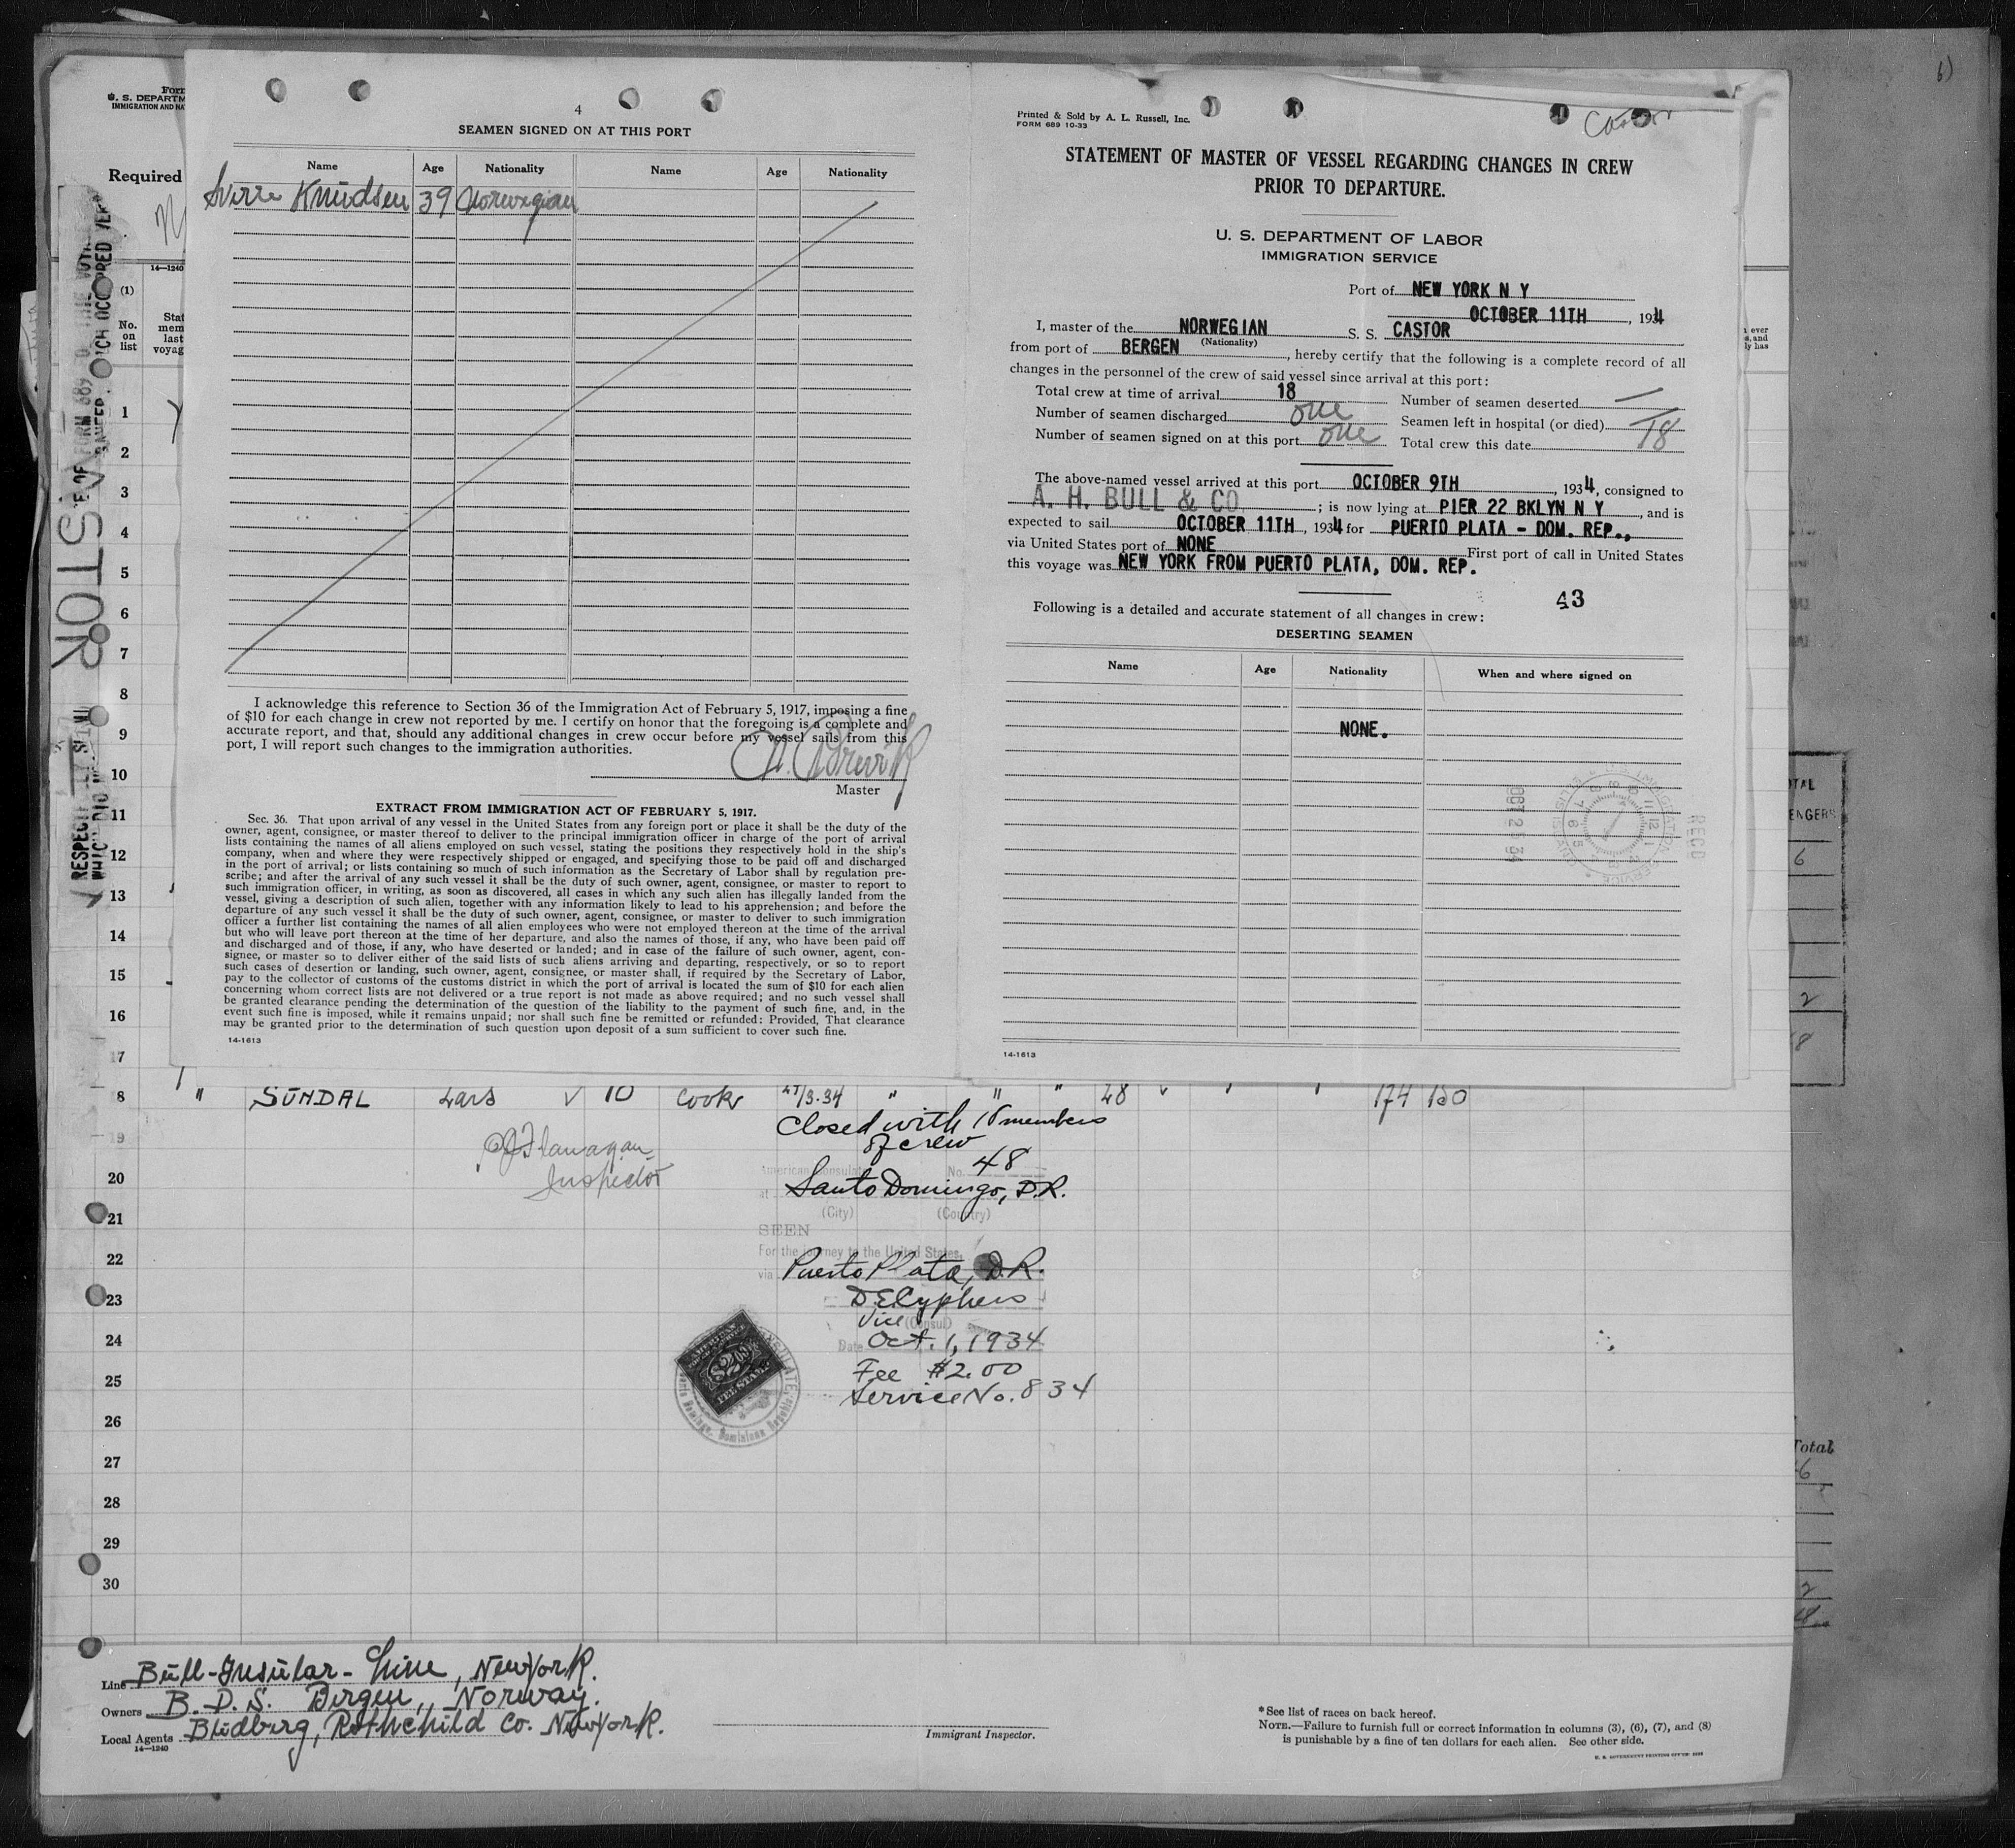 4
SEAMEN SIGNED ON AT THIS PORT
Name Age Nationality Name Age Nationality
Sverre Knudsen 39 Norwegian
I acknowledge this reference to Section 36 of the Immigration Act of February 5, 1917, imposing a fine
of $10 for each change in crew not reported by me. I certify on honor that the foregoing is a complete and
accurate report, and that, should any additional changes in crew occur before my vessel sails from this
port, I will report such changes to the immigration authorities.
Master
EXTRACT FROM IMMIGRATION ACT OF FEBRUARY 5, 1917.
Sec. 36. That upon arrival of any vessel in the United States from any foreign port or place it shall be the duty of the
owner, agent, consignee, or master thereof to deliver to the principal immigration officer in charge of the port of arrival
lists containing the names of all aliens employed on such vessel, stating the positions they respectively hold in the ship's
company, when and where they were respectively shipped or engaged, and specifying those to be paid off and discharged
in the port of arrival; or lists containing so much of such information as the Secretary of Labor shall by regulation pre-
scribe; and after the arrival of any such vessel it shall be the duty of such owner, agent, consignee, or master to report to
such immigration officer, in writing, as soon as discovered, all cases in which any such alien has illegally landed from the
vessel, giving a description of such alien, together with any information likely to lead to his apprehension; and before the
departure of any such vessel it shall be the duty of such owner, agent, consignee, or master to deliver to such immigration
officer a further list containing the names of all alien employees who were not employed thereon at the time of the arrival
but who will leave port thereon at the time of her departure, and also the names of those, if any, who have been paid off
and discharged and of those, if any, who have deserted or landed; and in case of the failure of such owner, agent, con-
signee, or master so to deliver either of the said lists of such aliens arriving and departing, respectively, or so to report
such cases of desertion or landing, such owner, agent, consignee, or master shall, if required by the Secretary of Labor,
pay to the collector of customs of the customs district in which the port of arrival is located the sum of $10 for each alien
concerning whom correct lists are not delivered or a true report is not made as above required; and no such vessel shall
be granted clearance pending the determination of the question of the liability to the payment of such fine, and, in the
event such fine is imposed, while it remains unpaid; nor shall such fine be remitted or refunded: Provided, That clearance
may be granted prior to the determination of such question upon deposit of a sum sufficient to cover such fine.
14-1613
Printed & Sold by A. L. Russell, Inc.
FORM 689 10-33
Castor
STATEMENT OF MASTER OF VESSEL REGARDING CHANGES IN CREW
PRIOR TO DEPARTURE.
U. S. DEPARTMENT OF LABOR
IMMIGRATION SERVICE
Port of NEW YORK N Y
OCTOBER 11TH, 1934
I, master of the NORWEGIAN S. S. CASTOR
(Nationality)
from port of BERGEN, hereby certify that the following is a complete record of all
changes in the personnel of the crew of said vessel since arrival at this port:
Total crew at time of arrival 18 Number of seamen deserted —
Number of seamen discharged one Seamen left in hospital (or died) —
Number of seamen signed on at this port one Total crew this date 18
The above-named vessel arrived at this port OCTOBER 9TH, 1934, consigned to
A. H. BULL & CO ; is now lying at PIER 22 BKLYN N Y, and is
expected to sail OCTOBER 11TH, 1934 for PUERTO PLATA - DOM. REP.,
via United States port of NONE First port of call in United States
this voyage was NEW YORK FROM PUERTO PLATA, DOM. REP.
43
Following is a detailed and accurate statement of all changes in crew:
DESERTING SEAMEN
Name Age Nationality When and where signed on
NONE.
OCT 25 34
RECD
14-1613
U. S. DEPARTM
IMMIGRATION AND NA
Required
14—1240
(1)
No.
on
list
Stat
mem
last
voyag
1
2
3
4
5
6
7
8
9
10
11
12
13
14
15
16
17
8 " SUNDAL Lars 10 Cook " " " 48 174 150
Closed with 18 members
of crew
19
Flanagan
Inspector
American Consulate No. 48
20
at Santo Domingo, D.R.
(City) (Country)
21
SEEN
For the journey to the United States,
22
via Puerto Plata, D.R.
23
Vice (Consul)
24
Date Oct. 1, 1934
Fee $2.00
25
Service No. 834
26
27
28
29
30
Line Bull-Insular-Line, New York.
Owners B. D. S. Bergen, Norway.
Local Agents Bidberg, Rothchild Co. New York.
14—1240
Immigrant Inspector.
*See list of races on back hereof.
NOTE.—Failure to furnish full or correct information in columns (3), (6), (7), and (8)
is punishable by a fine of ten dollars for each alien. See other side.
Total